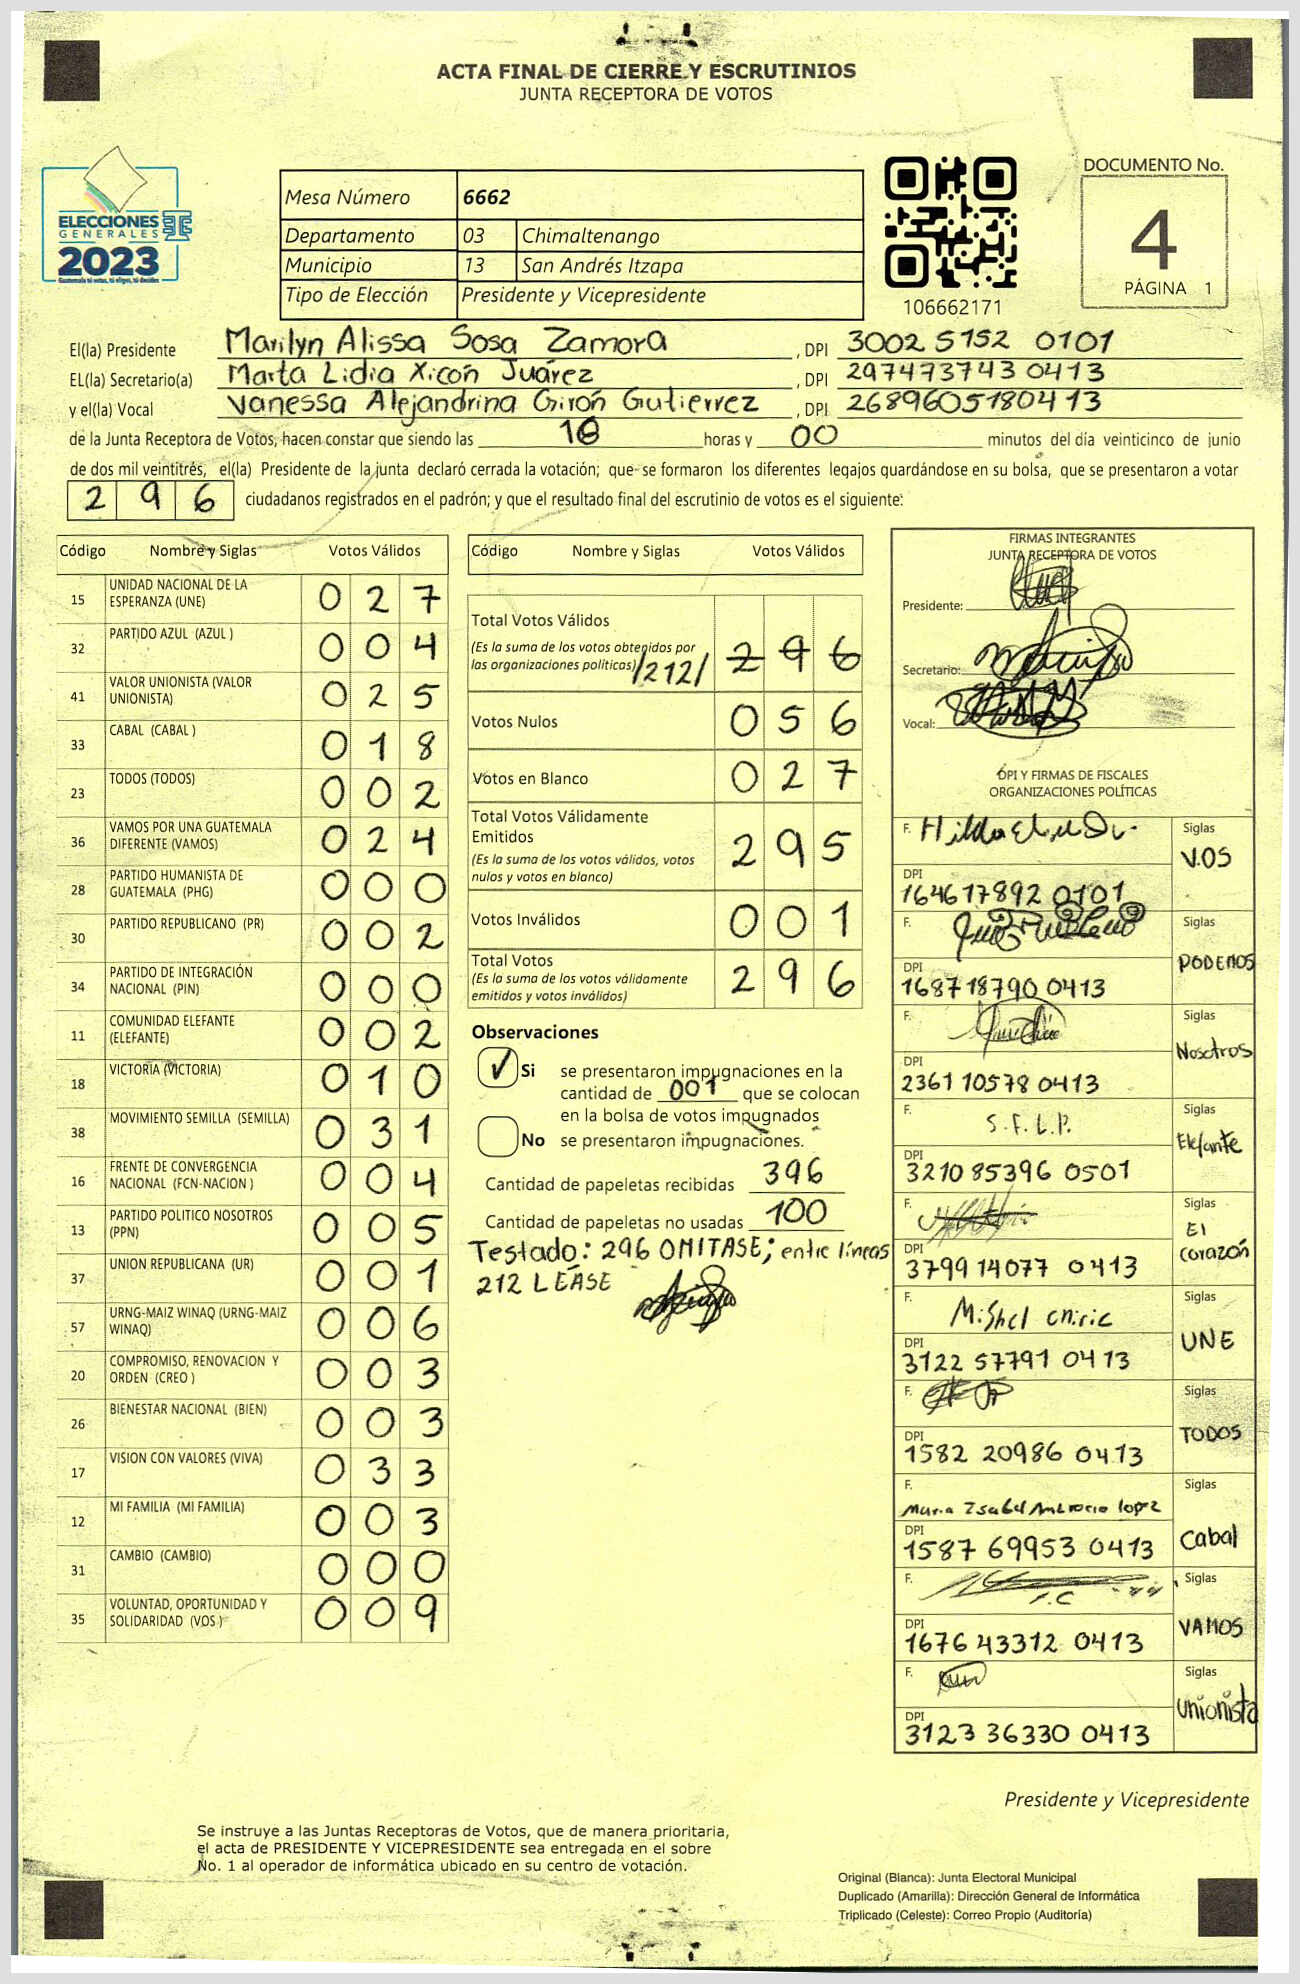 ACTA FINAL DE CIERRE Y ESCRUTINIOS
JUNTA RECEPTORA DE VOTOS
ELECCIONES
GENERALES
2023
Mesa Número 6662
Departamento 03 Chimaltenango
Municipio 13 San Andrés Itzapa
Tipo de Elección Presidente y Vicepresidente
106662171
DOCUMENTO No.
4
PÁGINA 1
El(la) Presidente Marilyn Alissa Sosa Zamora , DPI 3002 5152 0101
EL(la) Secretario(a) Marta Lidia Xicón Juárez , DPI 297473743 0413
y el(la) Vocal Vanessa Alejandrina Girón Gutierrez , DPI 2689605180413
de la Junta Receptora de Votos, hacen constar que siendo las 18 horas y 00 minutos del día veinticinco de junio
de dos mil veintitrés, el(la) Presidente de la junta declaró cerrada la votación; que se formaron los diferentes legajos quardándose en su bolsa, que se presentaron a votar
296 ciudadanos registrados en el padrón; y que el resultado final del escrutinio de votos es el siguiente:
Código Nombre y Siglas Votos Válidos
15 UNIDAD NACIONAL DE LA ESPERANZA (UNE) 027
32 PARTIDO AZUL (AZUL ) 004
41 VALOR UNIONISTA (VALOR UNIONISTA) 025
33 CABAL (CABAL ) 018
23 TODOS (TODOS) 002
36 VAMOS POR UNA GUATEMALA DIFERENTE (VAMOS) 024
28 PARTIDO HUMANISTA DE GUATEMALA (PHG) 000
30 PARTIDO REPUBLICANO (PR) 002
34 PARTIDO DE INTEGRACIÓN NACIONAL (PIN) 000
11 COMUNIDAD ELEFANTE (ELEFANTE) 002
18 VICTORIA (VICTORIA) 010
38 MOVIMIENTO SEMILLA (SEMILLA) 031
16 FRENTE DE CONVERGENCIA NACIONAL (FCN-NACION ) 004
13 PARTIDO POLITICO NOSOTROS (PPN) 005
37 UNION REPUBLICANA (UR) 001
57 URNG-MAIZ WINAQ (URNG-MAIZ WINAQ) 006
20 COMPROMISO, RENOVACION Y ORDEN (CREO ) 003
26 BIENESTAR NACIONAL (BIEN) 003
17 VISION CON VALORES (VIVA) 033
12 MI FAMILIA (MI FAMILIA) 003
31 CAMBIO (CAMBIO) 000
35 VOLUNTAD, OPORTUNIDAD Y SOLIDARIDAD (VOS ) 009
Código Nombre y Siglas Votos Válidos
Total Votos Válidos
(Es la suma de los votos obtenidos por
las organizaciones políticas) /212/ 296
Votos Nulos 056
Votos en Blanco 027
Total Votos Válidamente
Emitidos 295
(Es la suma de los votos válidos, votos
nulos y votos en blanco)
Votos Inválidos 001
Total Votos 296
(Es la suma de los votos válidamente
emitidos y votos inválidos)
Observaciones
✓ Si se presentaron impugnaciones en la
cantidad de 001 que se colocan
en la bolsa de votos impugnados
No se presentaron impugnaciones.
Cantidad de papeletas recibidas 396
Cantidad de papeletas no usadas 100
Testado: 296 OMITASE; entre líneas
212 LEASE
FIRMAS INTEGRANTES
JUNTA RECEPTORA DE VOTOS
Presidente:
Secretario:
Vocal:
DPI Y FIRMAS DE FISCALES
ORGANIZACIONES POLÍTICAS
F. Siglas
V.OS
DPI
164617892 0101
F. Siglas
PODEMOS
DPI
1687 18790 0413
F. Siglas
Nosotros
DPI
2361 10578 0413
F. S.F.L.P. Siglas
Elefante
DPI
3210 85396 0501
F. Siglas
El
corazón
DPI
3799 14077 0413
F. Siglas
UNE
DPI
3122 57791 0413
F. Siglas
TODOS
DPI
1582 20986 0413
F. Siglas
Maria Isabel Ambrocio lopez
Cabal
DPI
1587 69953 0413
F. Siglas
VAMOS
DPI
1676 43312 0413
F. Siglas
Unionista
DPI
3123 36330 0413
Presidente y Vicepresidente
Se instruye a las Juntas Receptoras de Votos, que de manera prioritaria,
el acta de PRESIDENTE Y VICEPRESIDENTE sea entregada en el sobre
No. 1 al operador de informática ubicado en su centro de votación.
Original (Blanca): Junta Electoral Municipal
Duplicado (Amarilla): Dirección General de Informática
Triplicado (Celeste): Correo Propio (Auditoría)